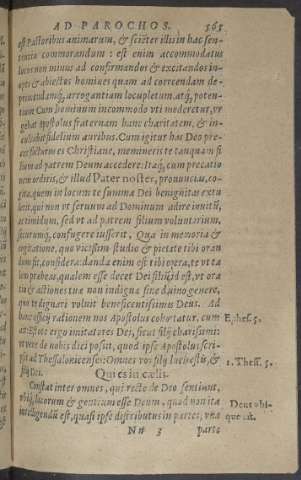 AD PAROCHOS. 565
est Pastoribus animarum, & scitè illis in hac sen-
tentia commorandum: est enim accommodatus
locus non minus ad confirmandos & excitandos in-
& abiectos homines quam ad coercendam
arrogantiam locupletum atq; poten-
tium. Cum hominum incommodo vti moderetur, vr-
gebat Apostolus fraternam hanc charitatem, & in-
fidelium auribus. Cum igitur has Deo pre-
ces facturus es Christiane, memineris te tanquam fi-
lium ad patrem Deum accedere. Itaq; cum precatio
nem ordiris, & illud Pater noster, pronuncias, co-
gita, quem in locum te summa Dei benignitas extu
lerit, qui non vt seruum ad Dominum adire inuitū,
ac timidum, sed vt ad patrem filium voluntarium,
securumq; confugere iusserit, Qua in memoria &
cogitatione, quo vicissim studio & pietate tibi oran
dum sit, considera: danda enim est tibi opera, te vt ta
lem præbeas, qualem esse decet Dei filiū, id est, vt ora
tio & actiones tuæ non indignæ sint diuino genere,
quo te dignari voluit beneficentissimus Deus. Ad
hanc officij rationem nos Apostolus cohortatur, cum
ait: Estote ergo imitatores Dei, sicut filij charissimi:
vt vere de nobis dici possit, quod ipse Apostolus scri-
psit ad Thessalonicenses: Omnes vos filij lucis estis, &
filij diei.
Ephes. 5.
1. Thess. 5.
Qui es in cælis.
Constat inter omnes, qui recte de Deo sentiunt,
locorum & gentium esse Deum, quod non ita
intelligendū est, quasi ipse distributus in partes, vna
Deus vbi-
que est.
Nn 3 parte